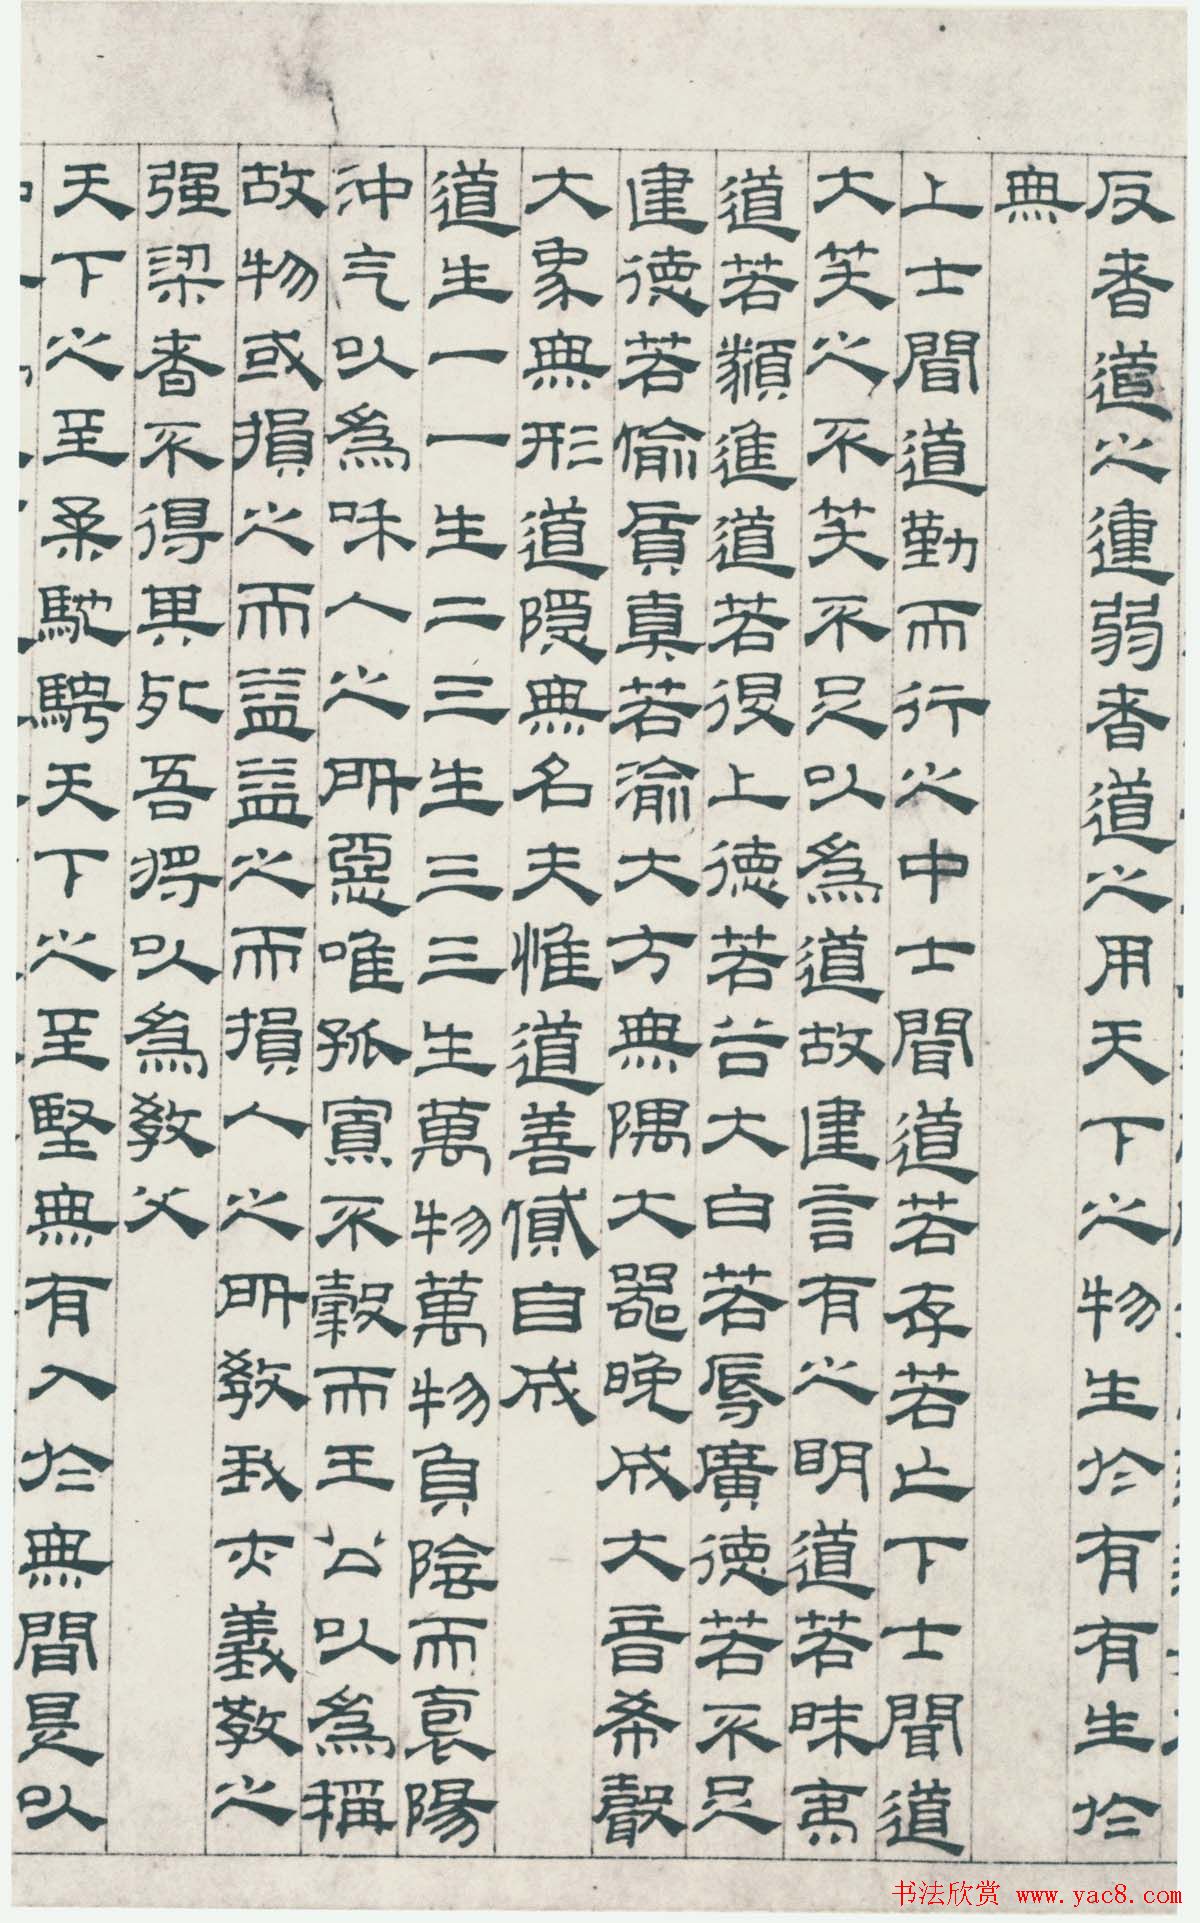 反者道之動弱者道之用天下之物生於有有生於
無
上士聞道勤而行之中士聞道若存若亡下士聞道
大笑之不笑不足以為道故建言有之明道若昧夷
道若類進道若退上德若谷大白若辱廣德若不足
建德若偷質真若渝大方無隅大器晚成大音希聲
大象無形道隱無名夫惟道善貸自成
道生一一生二三生三三生萬物萬物負陰而袌陽
沖气以為咊人之所惡唯孤寡不穀而王公以為稱
故物或損之而益益之而損人之所教我亦義教之
强梁者不得其死吾將以為教父
天下之至柔馳騁天下之至堅無有入於無間是以
书法欣赏 www.yac8.com